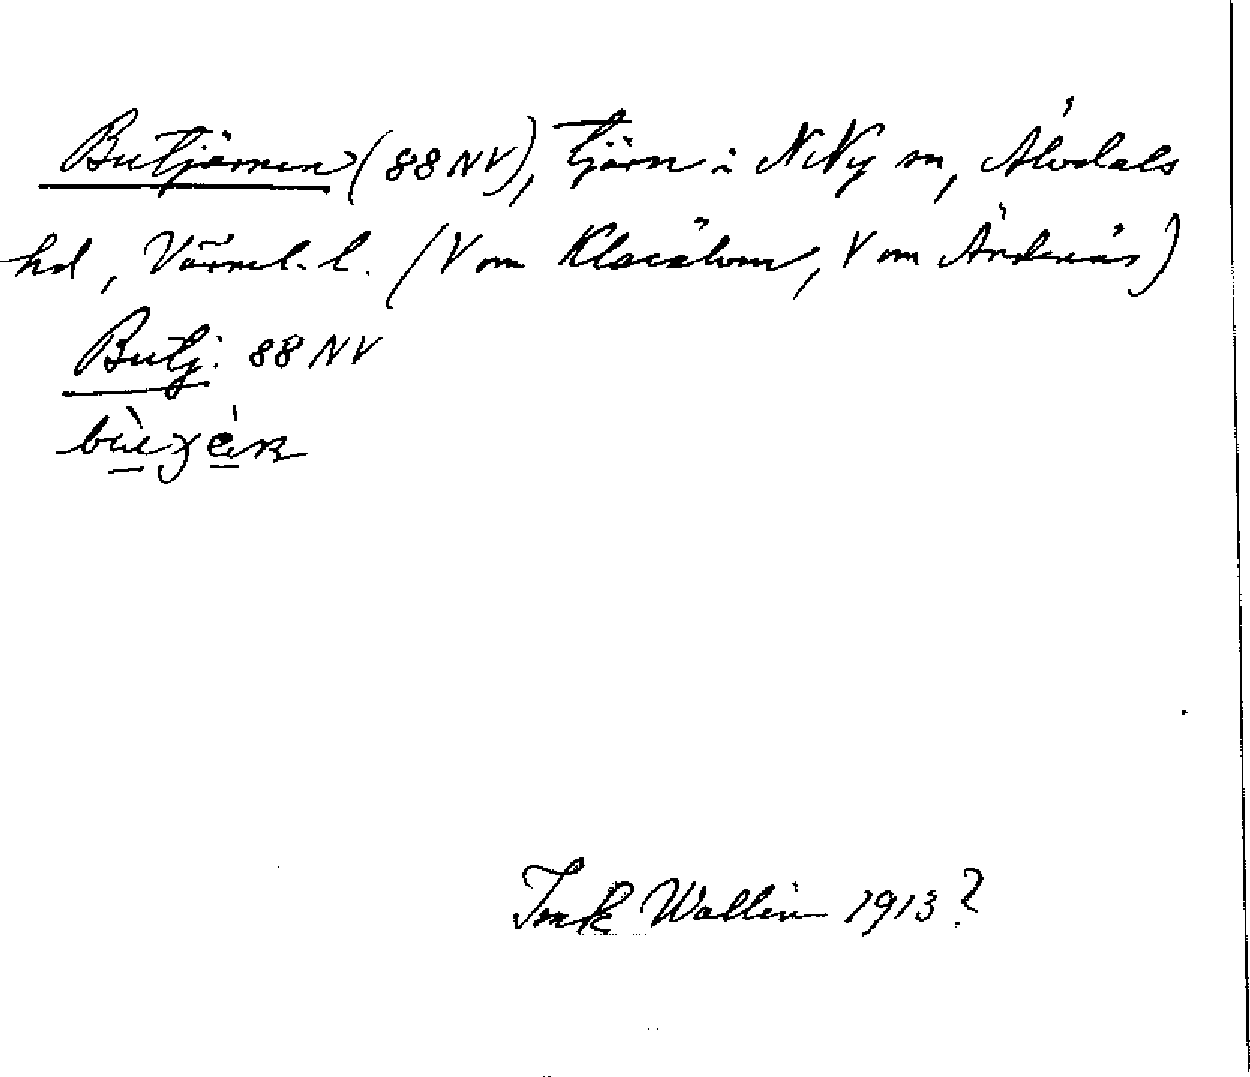 Butjärnen (88 NV), tjärn i N Ny sn, Älvdals
hd, Värml. l. (V om Klarälven, V om
Butj. 88 NV
Wallin 1913?